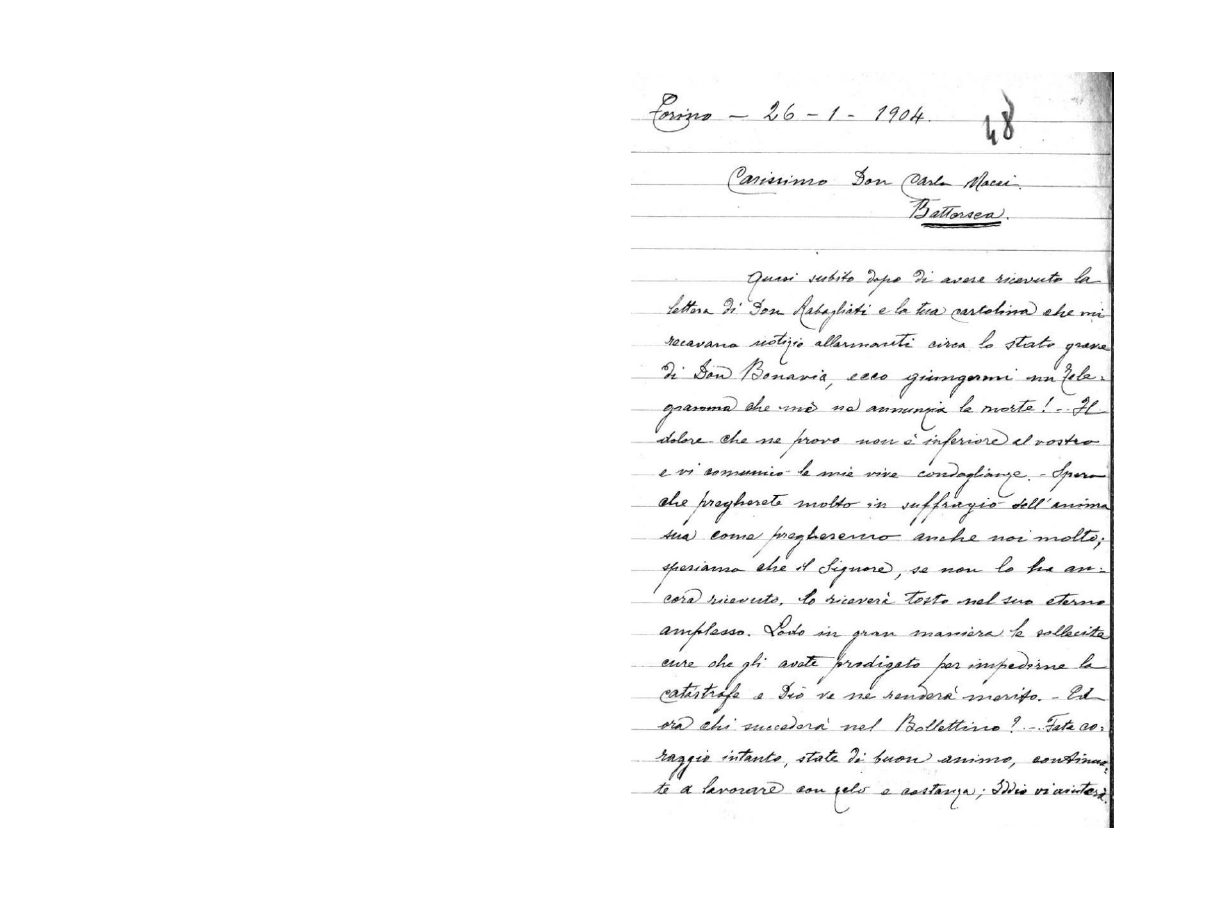 Torino – 26 – 1 – 1904.
48
Carissimo Don Carlo Macei.
Battersea.
Quasi subito dopo di avere ricevuto la
lettera di Don Rabagliati e la tua cartolina che mi
recavano notizie allarmanti circa lo stato grave
di Don Bonavia, ecco giungermi un tele-
gramma che me ne annunzia la morte! .. Il
dolore che ne provo non è inferiore al vostro
e vi comunico le mie vive condoglianze. – Spero
che pregherete molto in suffragio dell'anima
sua come pregheremo anche noi molto;
speriamo che il Signore, se non lo ha an-
cora ricevuto, lo riceverà tosto nel suo eterno
amplesso. Lodo in gran maniera le sollecite
cure che gli avete prodigato per impedirne la
catastrofe e Dio ve ne renderà merito. – Ed
ora chi succederà nel Bollettino? ... Fate co-
raggio intanto, state di buon animo, continua-
te a lavorare con zelo e costanza; Iddio vi aiuterà.